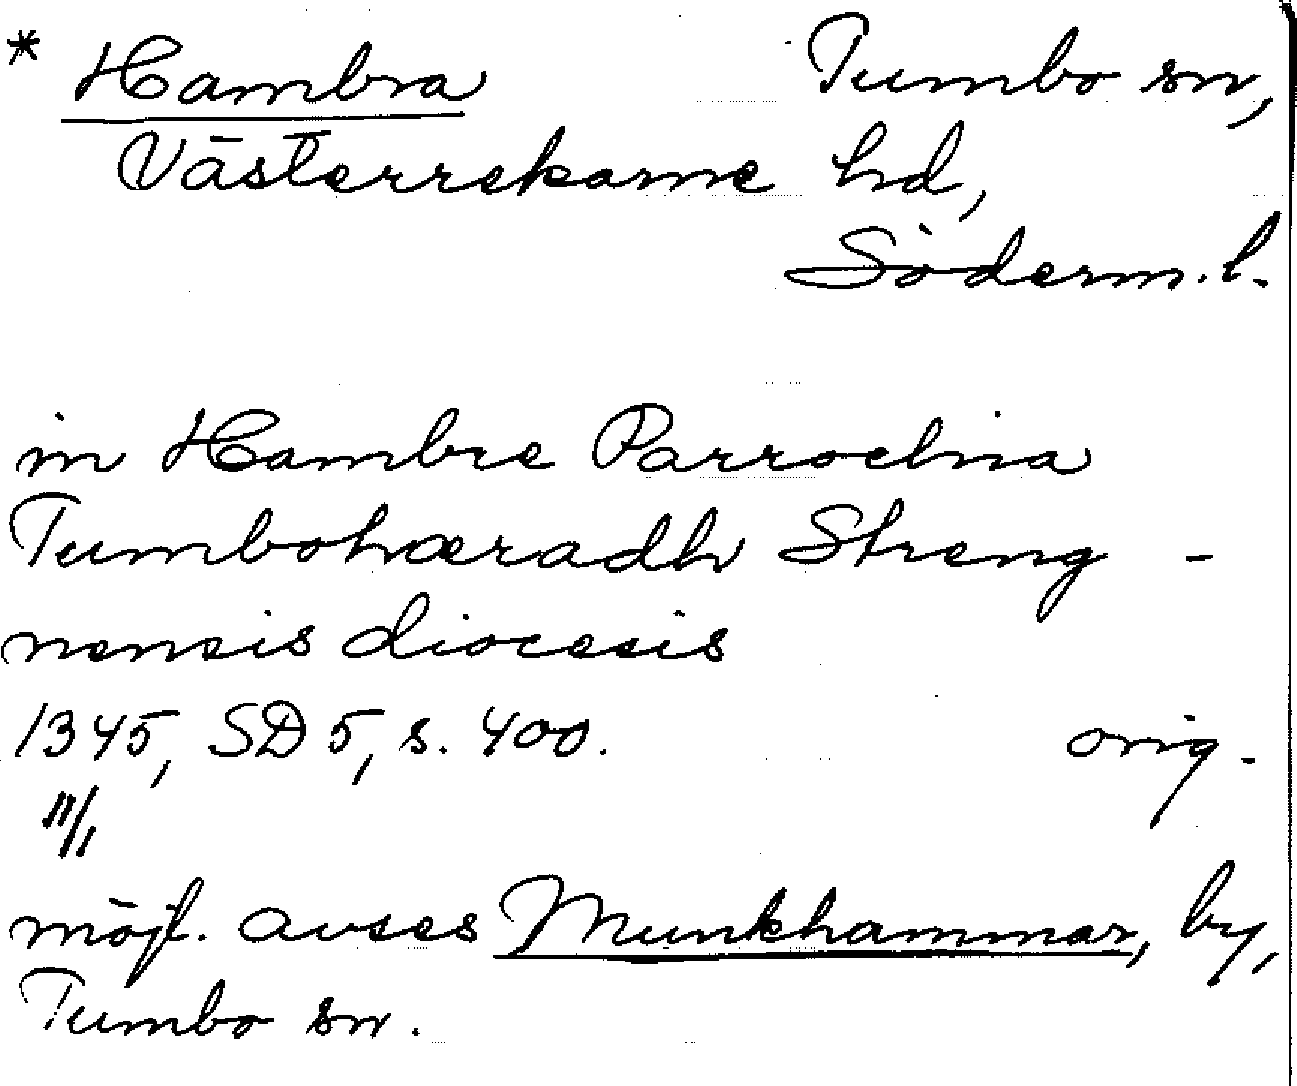 * Hambra Tumbo sn,
Västerrekarne hd,
Söderm. l.
in Hambre Parrochia
Tumbohæradh Streng -
nensis diocesis
1345, SD 5, s. 400. orig.
11/1
möjl. avses Munkhammar, by,
Tumbo sn.